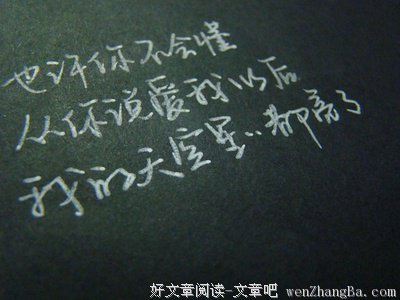 也许你不会懂
从你说爱我以后
我的天空星..都亮了
好文章阅读-文章吧
wenZhangBa.com